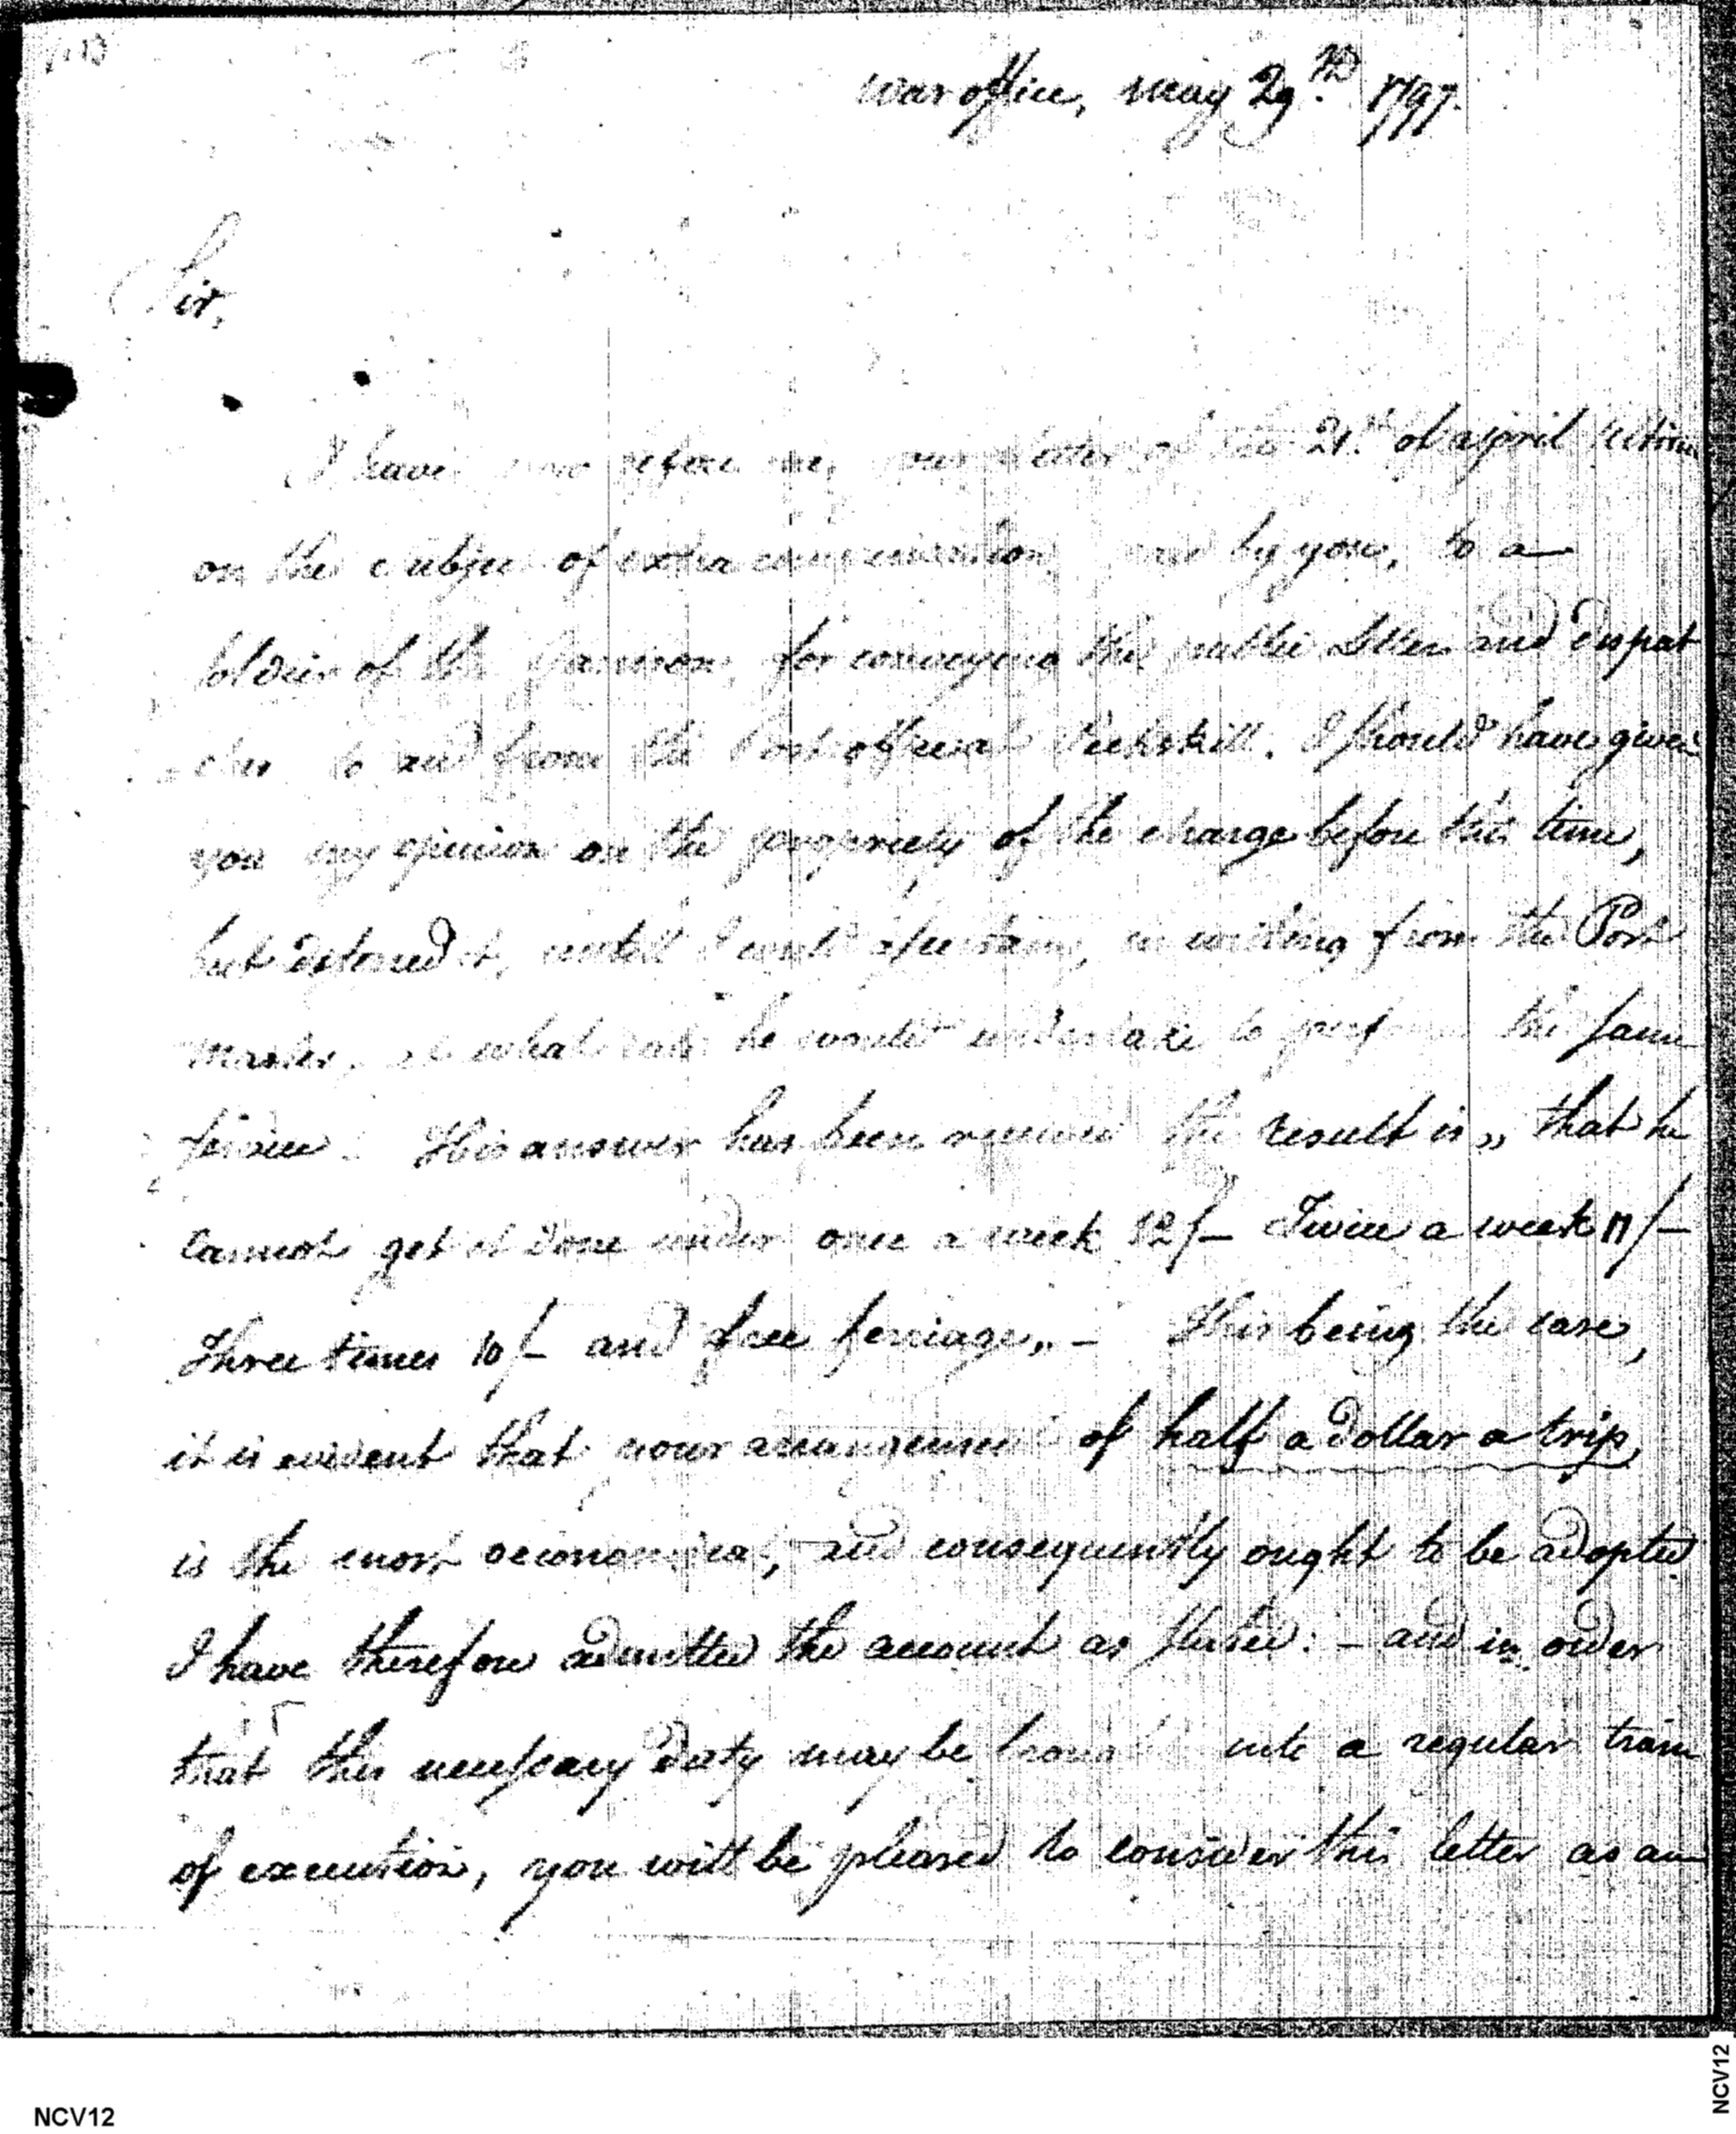 War office, May 29th 1797.
Sir,
I have now before me, your letter of the 21.st of april
on the subject of extra compensation by you, to a
soldier of the Garrison, for conveying the public letters and dispat
ches to and from the Post office at Peekskill. I should have given
you my opinion on the propriety of the charge before this time,
but deferred it, untill I could ascertain, in writing from the Post
Master, at what rate he would undertake to perform the same
service. His answer has been received the result is ,, that he
cannot get it done under once a week 12/– Twice a week 11/–
Three times 10/– and free ferriage,, – This being the case,
it is evident that your arrangement of half a dollar a trip,
is the most oeconomical, and consequently ought to be adopted
I have therefore admitted the account as stated: – and in order
that this necessary duty may be brought into a regular train
of execution, you will be pleased to consider this letter as an
NCV12
NCV12